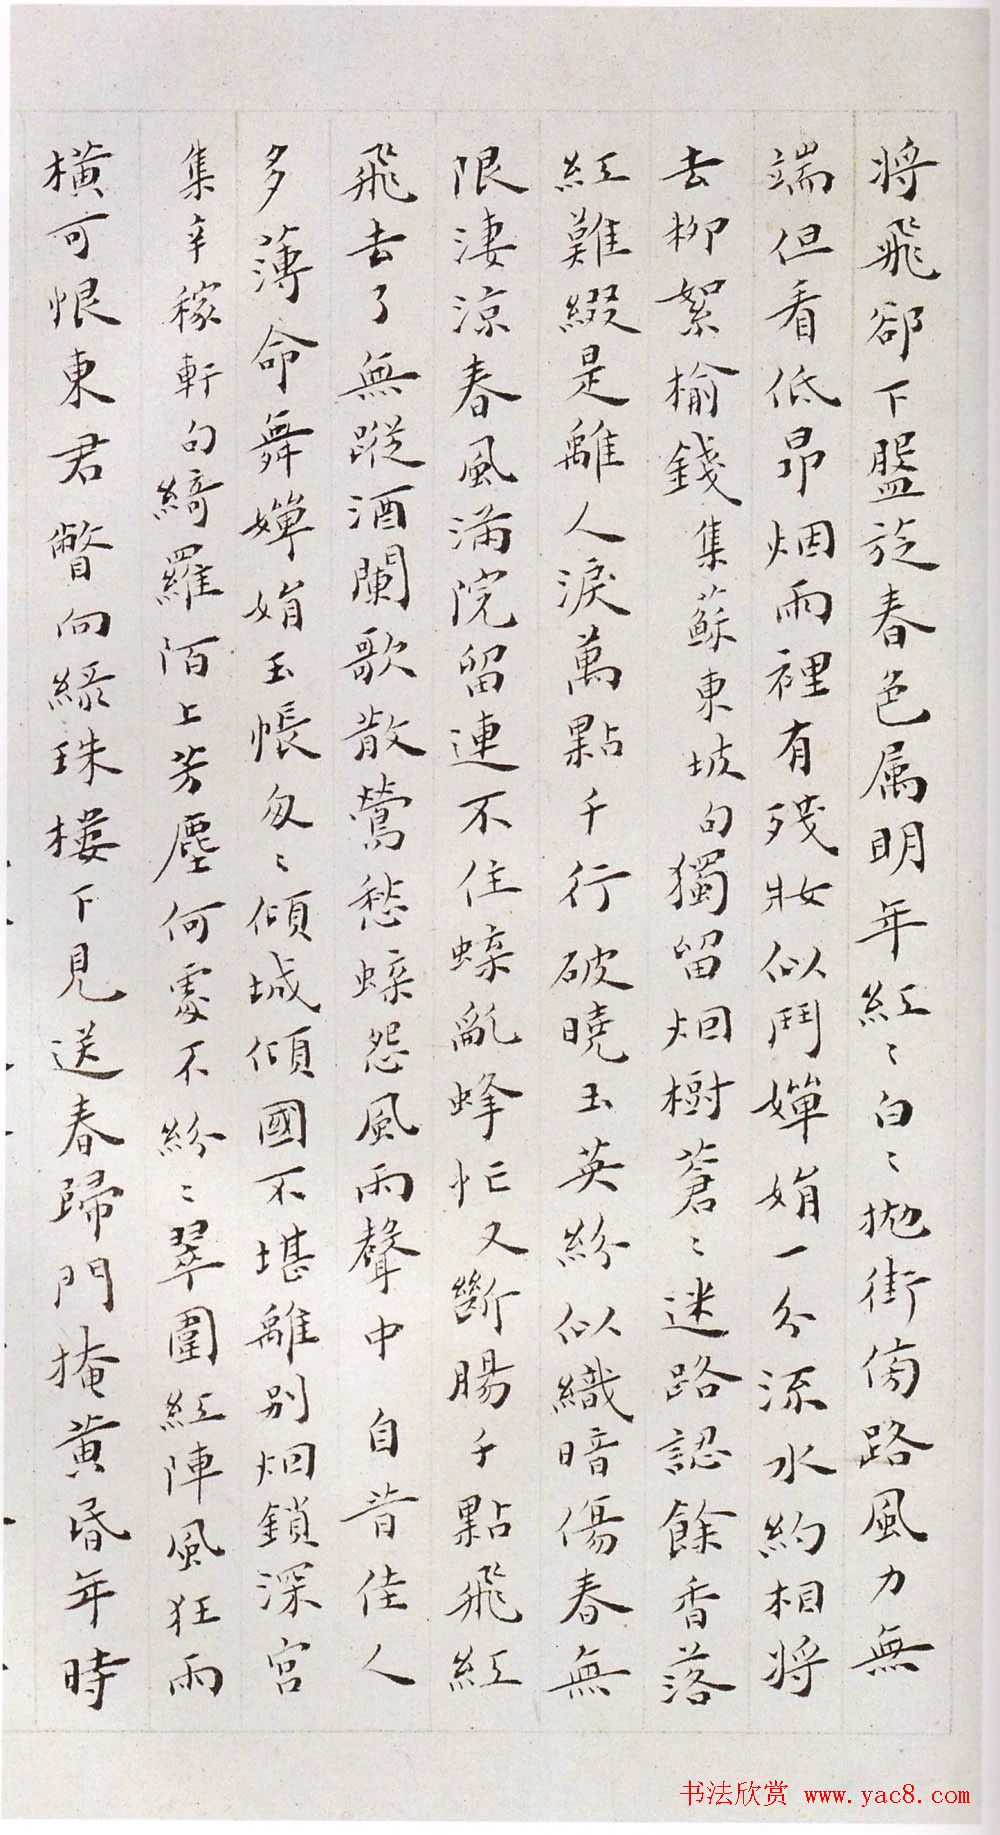 将飛卻下盤旋春色属明年紅〻白〻拋街傍路風力無
端但看低昂烟雨裡有殘妝似鬥嬋娟一分流水約相將
去柳絮榆錢集蘇東坡句獨留烟樹蒼〻迷路認餘香落
紅難綴是離人淚萬點千行破曉玉英紛似織暗傷春無
限淒涼春風滿院留連不住蝶亂蜂忙又斷腸千點飛紅
飛去了無蹤酒闌歌散鶯愁蝶怨風雨聲中 自昔佳人
多薄命舞嬋娟玉帳匆〻傾城傾國不堪離別烟鎖深宮
集辛稼軒句綺羅陌上芳塵何處不紛〻翠圍紅陣風狂雨
橫可恨東君瞥向緑珠樓下見送春歸門掩黃昏年時
书法欣赏 www.yac8.com